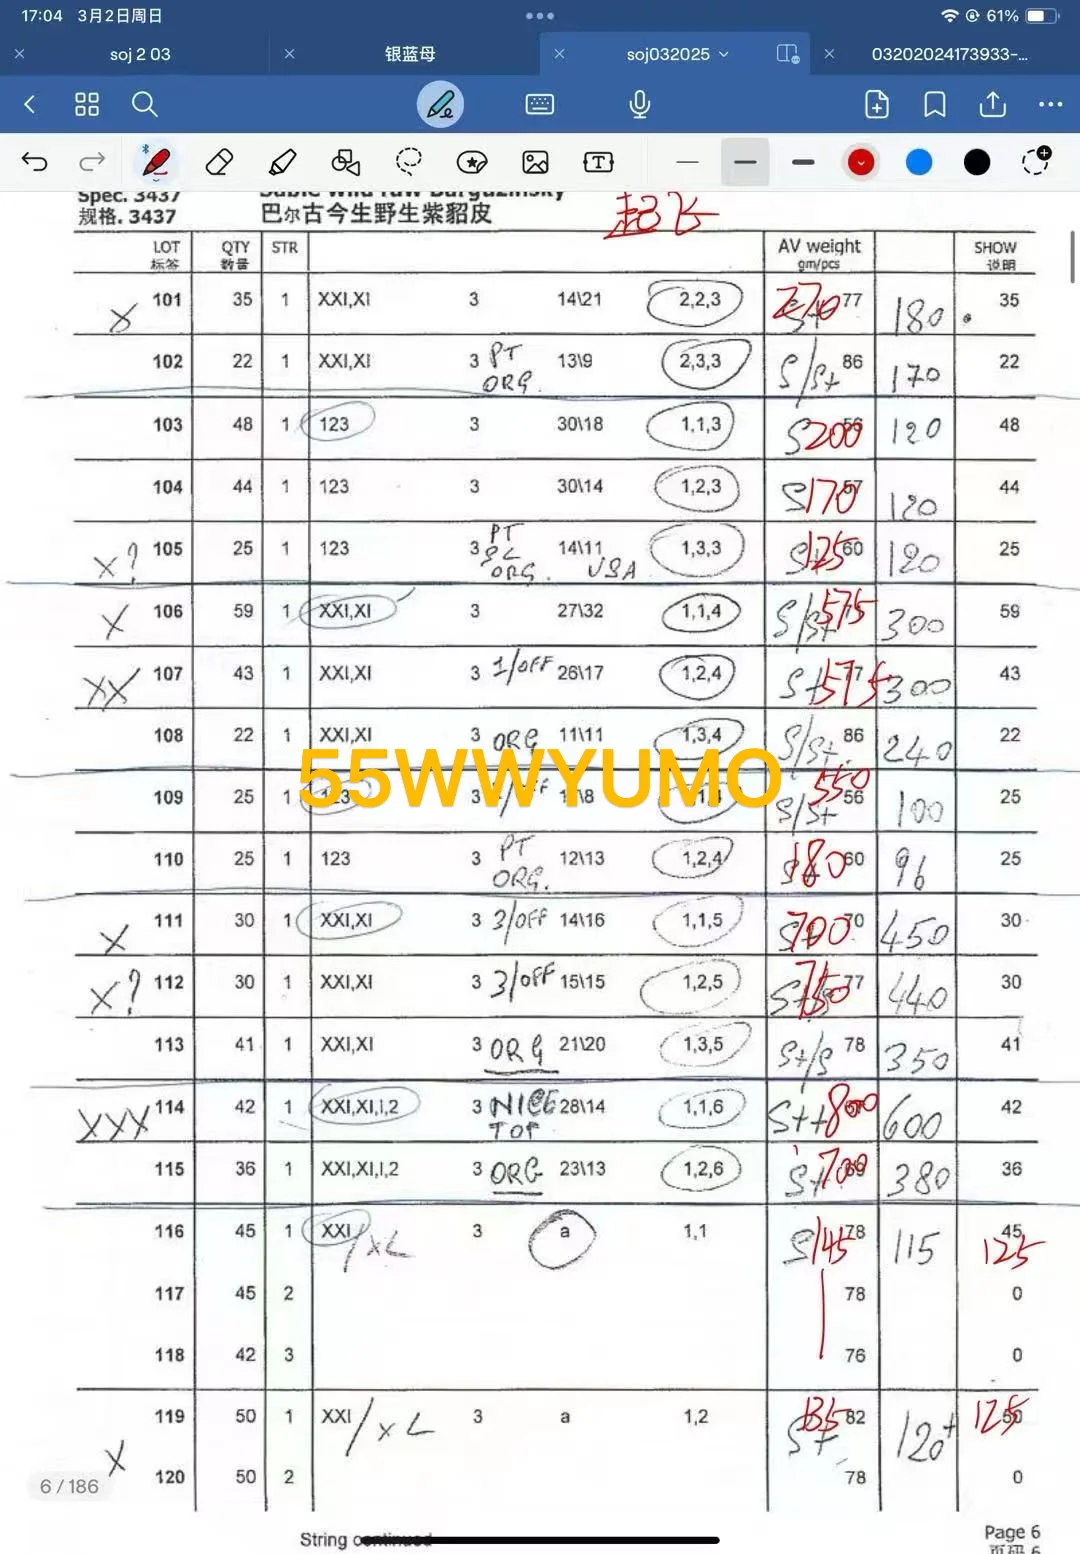 17:04 3月2日周日 61%
soj 2 03 银蓝母 soj032025 03202024173933-...
Spec. 3437 Sable Wild raw Barguzinsky
规格. 3437 巴尔古今生野生紫貂皮 起飞
LOT QTY STR AV weight SHOW
标签 数量 gm/pcs 说明
X 101 35 1 XXI,XI 3 14\21 2,2,3 270 77 180 35
102 22 1 XXI,XI 3 PT 13\9 2,3,3 S/S+ 86 170 22
ORG.
103 48 1 123 3 30\18 1,1,3 S 200 120 48
104 44 1 123 3 30\14 1,2,3 S 170 57 120 44
X? 105 25 1 123 3 PT SL 14\11 1,3,3 125 60 120 25
ORG. USA
X 106 59 1 XXI,XI 3 27\32 1,1,4 S/S+ 575 300 59
XX 107 43 1 XXI,XI 3 1/OFF 26\17 1,2,4 S+ 575 77 300 43
108 22 1 XXI,XI 3 ORG 11\11 1,3,4 S/S+ 86 240 22
55WWYUMO
109 25 1 123 3 S/S+ 550 56 100 25
110 25 1 123 3 PT 12\13 1,2,4 180 60 96 25
ORG.
X 111 30 1 XXI,XI 3 3/OFF 14\16 1,1,5 700 70 450 30
X? 112 30 1 XXI,XI 3 3/OFF 15\15 1,2,5 750 77 440 30
113 41 1 XXI,XI 3 ORG 21\20 1,3,5 S+/S 78 350 41
XXX 114 42 1 XXI,XI,I,2 3 NICE 28\14 1,1,6 S++ 800 600 42
TOP
115 36 1 XXI,XI,I,2 3 ORG 23\13 1,2,6 S+ 700 69 380 36
116 45 1 XXI/XL 3 a 1,1 S 145 78 115 45
125
117 45 2 78 0
118 42 3 76 0
119 50 1 XXI/XL 3 a 1,2 S+ 135 82 120+ 125 50
X 120 50 2 78 0
6 / 186
String continued Page 6
页码 6